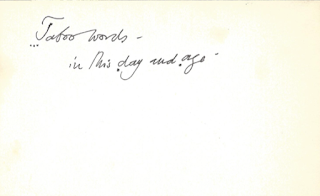 ...Taboo words -
in this day and age -